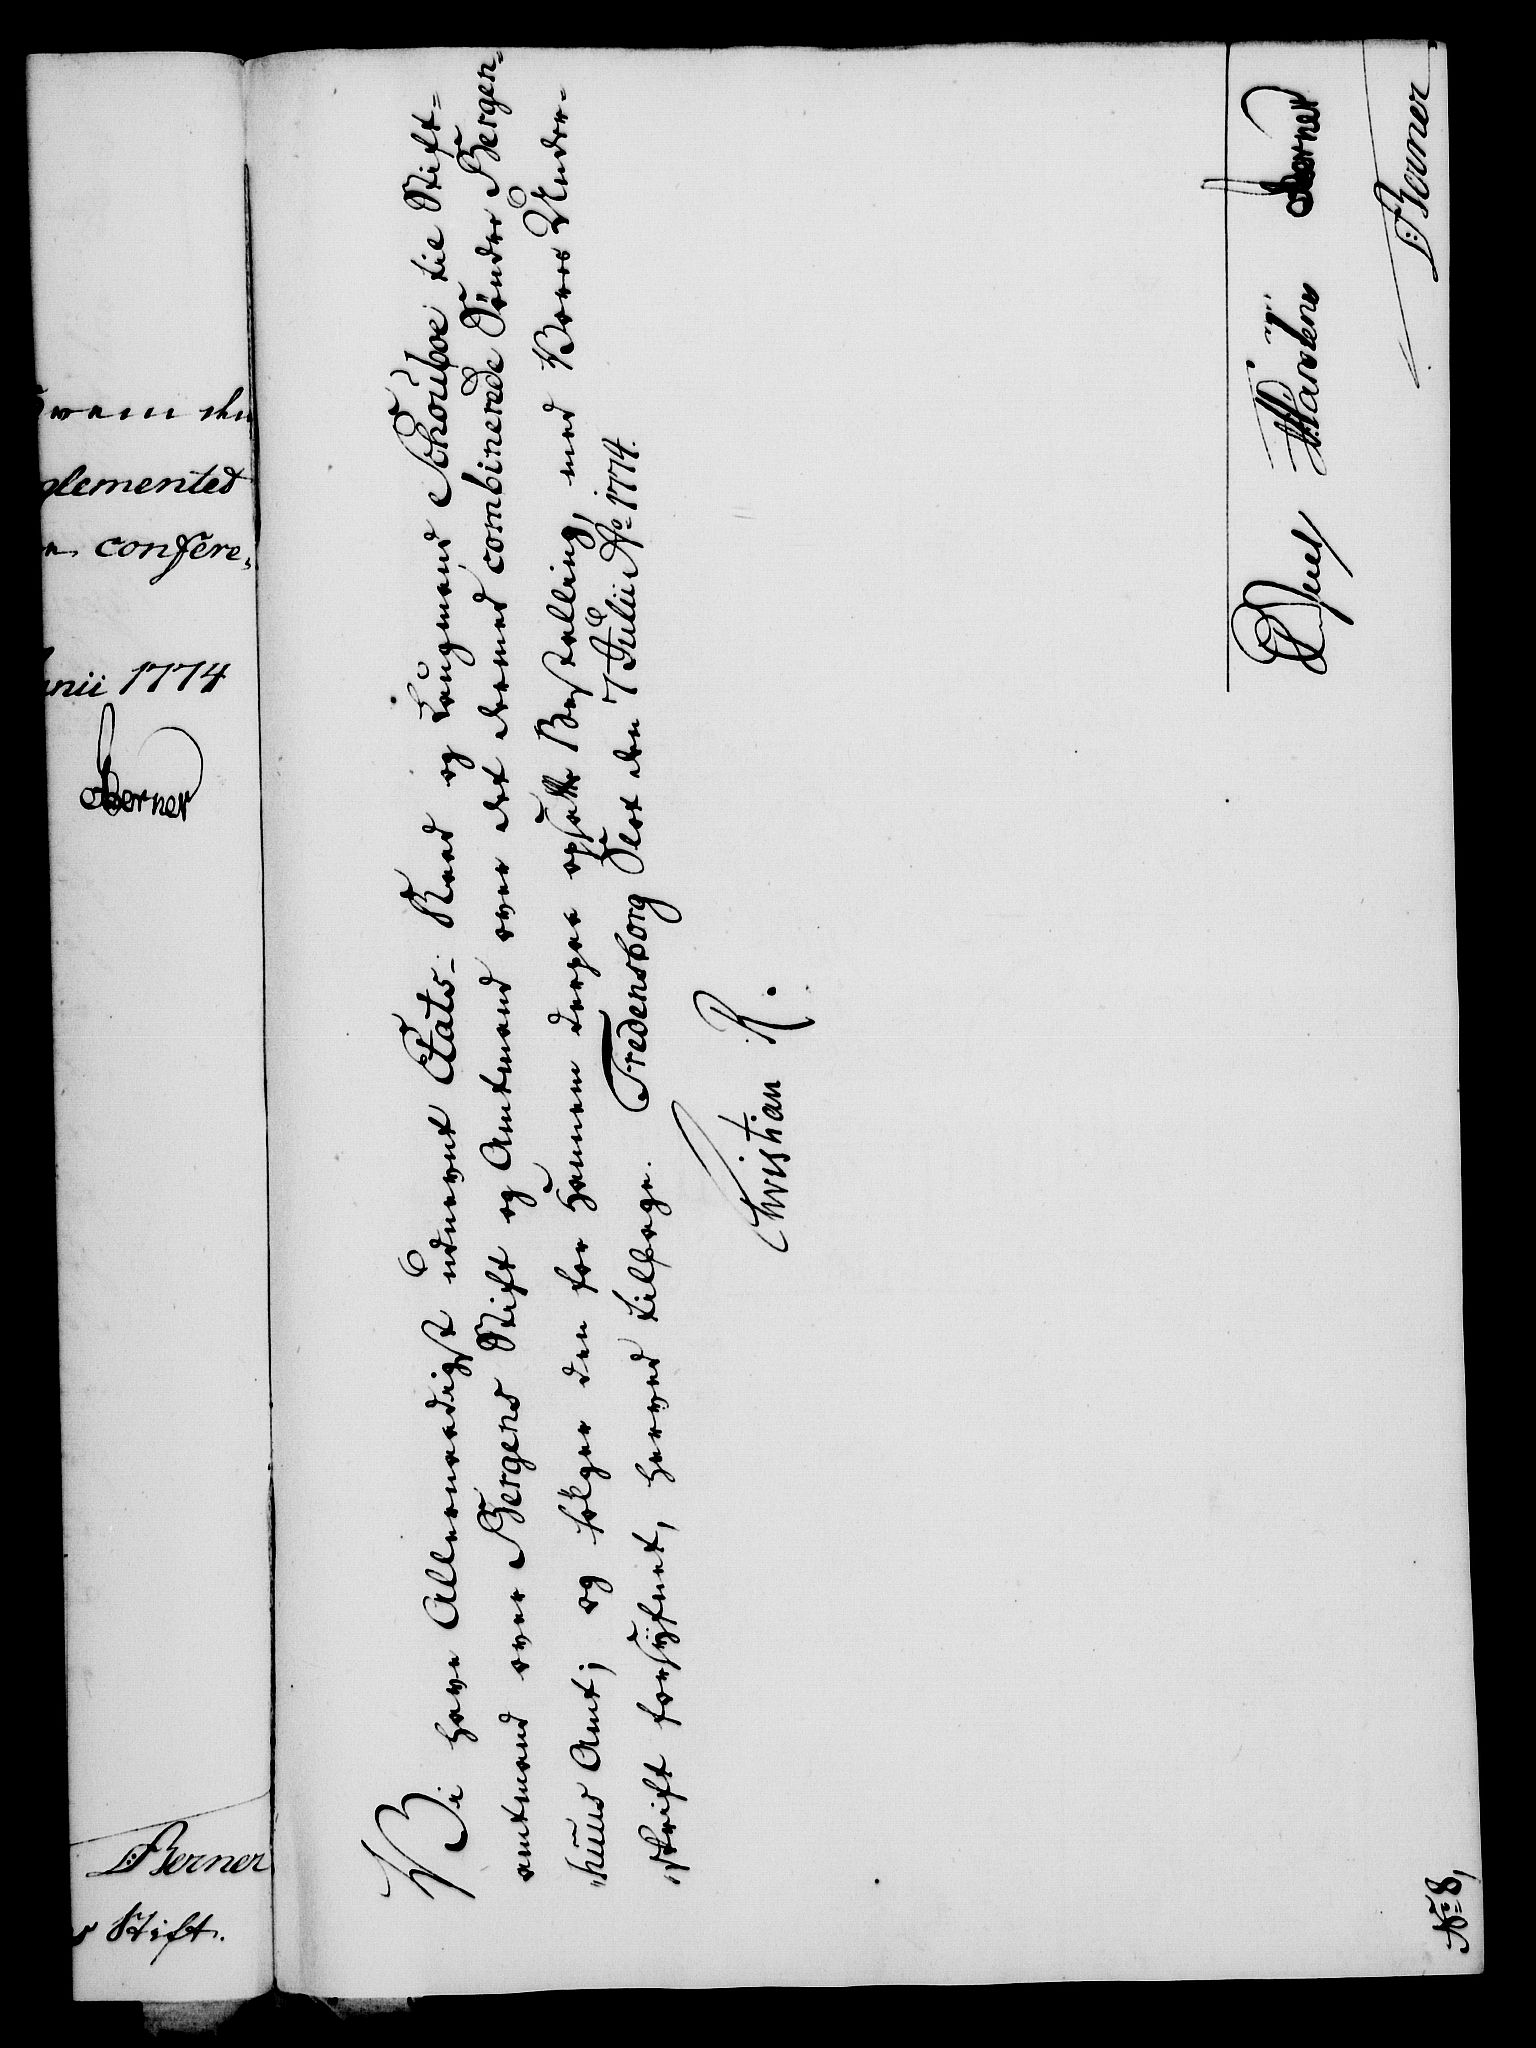 wam ihn
glemented
confere,
unii 1774
Berner
/:Berner
s Stift.
Vi have Allernaadigst udnevnt Etats-Raad og Laugmand Schouboe til Stift-
amtmand over Bergens Stift og Amtmand over det dermed combinerede Sönder Bergen-
huus Amt; og følger den for Hannem derpaa opsatte Bestalling, med Vores Under-
skrift forsÿnet, herved tilbage. Fredensborg Slot den 7de Julii Ao 1774.
Christian R.
Juel Berner
/:Berner
No 8,